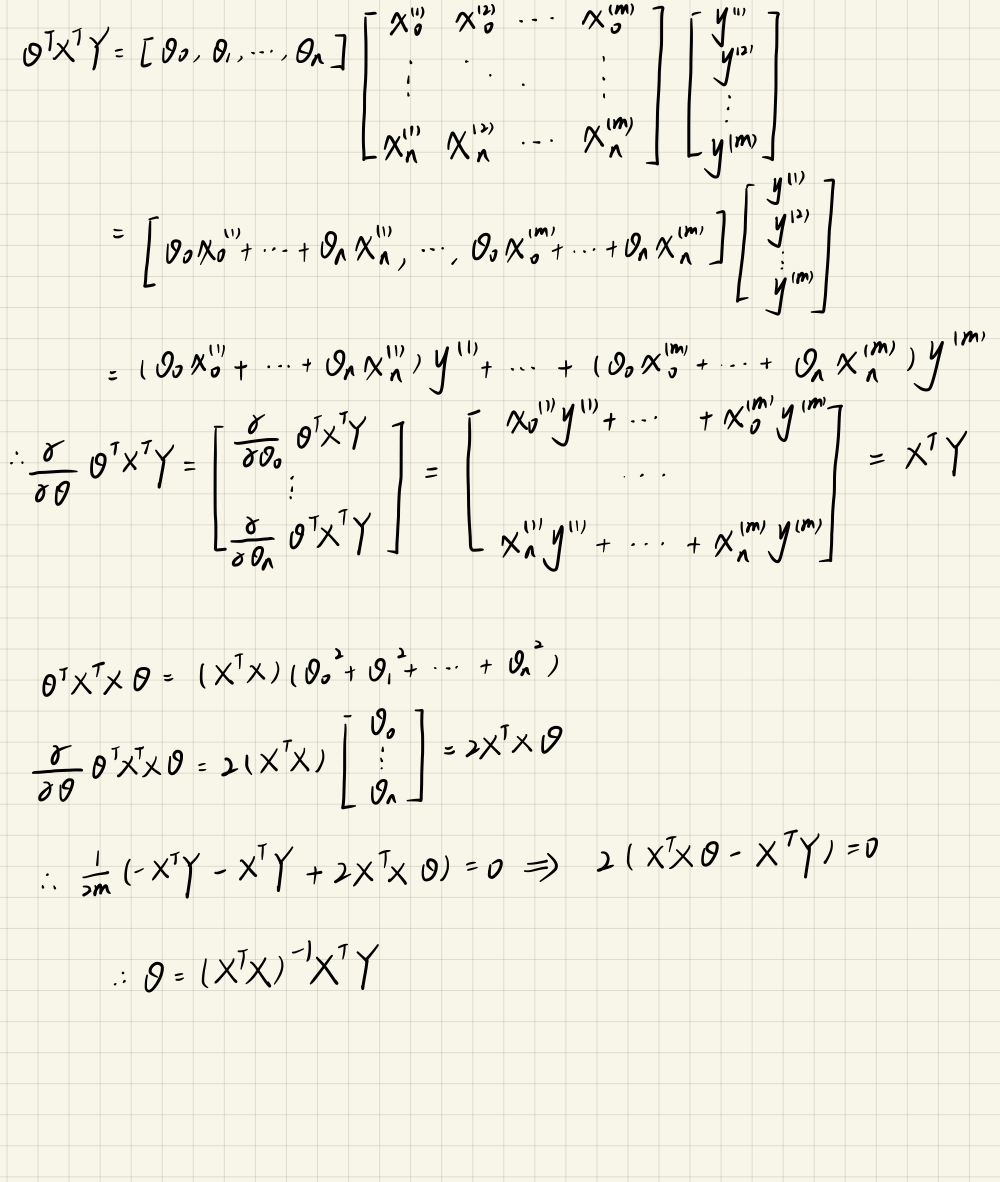 θᵀXᵀY = [θ₀, θ₁, ⋯, θₙ] [x₀⁽¹⁾ x₀⁽²⁾ ⋯ x₀⁽ᵐ⁾; ⋮ ⋱ ⋮; xₙ⁽¹⁾ xₙ⁽²⁾ ⋯ xₙ⁽ᵐ⁾] [y⁽¹⁾; y⁽²⁾; ⋮; y⁽ᵐ⁾]
= [θ₀x₀⁽¹⁾ + ⋯ + θₙxₙ⁽¹⁾, ⋯, θ₀x₀⁽ᵐ⁾ + ⋯ + θₙxₙ⁽ᵐ⁾] [y⁽¹⁾; y⁽²⁾; ⋮; y⁽ᵐ⁾]
= (θ₀x₀⁽¹⁾ + ⋯ + θₙxₙ⁽¹⁾) y⁽¹⁾ + ⋯ + (θ₀x₀⁽ᵐ⁾ + ⋯ + θₙxₙ⁽ᵐ⁾) y⁽ᵐ⁾
∴ ∂/∂θ θᵀXᵀY = [∂/∂θ₀ θᵀXᵀY; ⋮; ∂/∂θₙ θᵀXᵀY] = [x₀⁽¹⁾y⁽¹⁾ + ⋯ + x₀⁽ᵐ⁾y⁽ᵐ⁾; ⋯; xₙ⁽¹⁾y⁽¹⁾ + ⋯ + xₙ⁽ᵐ⁾y⁽ᵐ⁾] = XᵀY
θᵀXᵀXθ = (XᵀX)(θ₀² + θ₁² + ⋯ + θₙ²)
∂/∂θ θᵀXᵀXθ = 2(XᵀX) [θ₀; ⋮; θₙ] = 2XᵀXθ
∴ 1/2m (-XᵀY - XᵀY + 2XᵀXθ) = 0 ⇒ 2(XᵀXθ - XᵀY) = 0
∴ θ = (XᵀX)⁻¹XᵀY